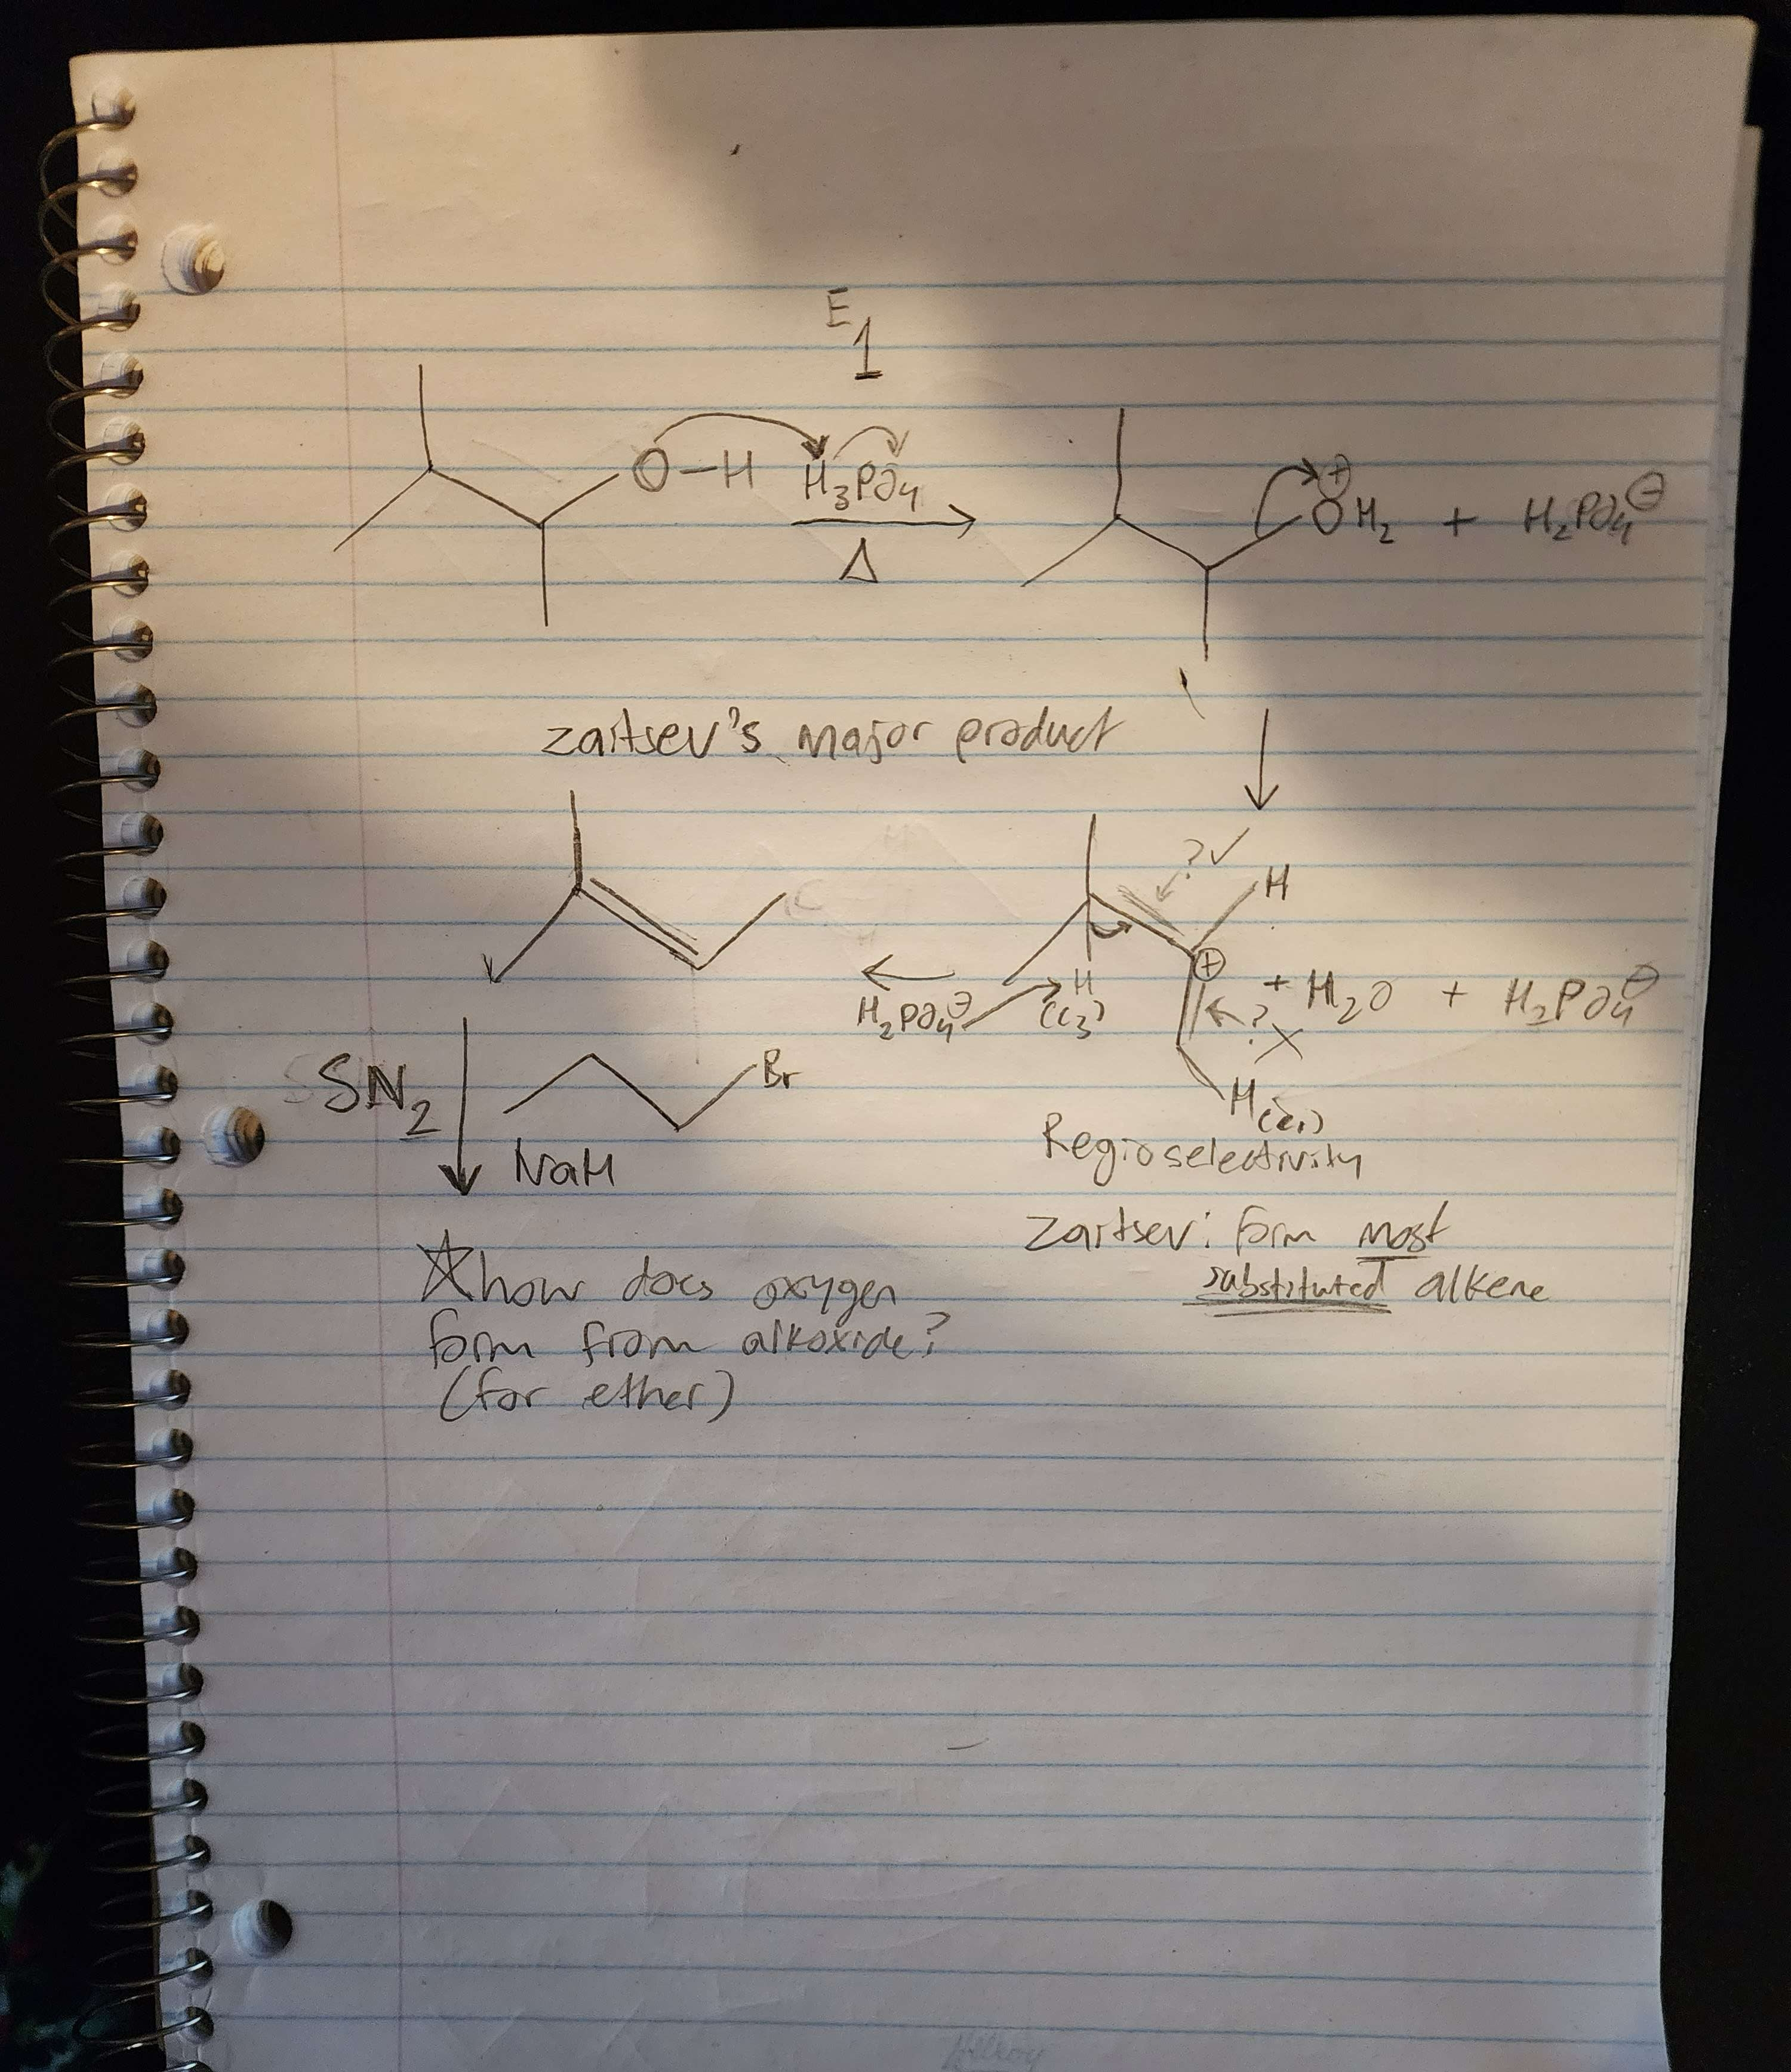 E
1
O-H H₃PO₄
Δ
⊕
OH₂ + H₂PO₄⊖
zaitsev's major product
?✓
H
⊕
H
(c₃)
H₂PO₄⊖
+ H₂O + H₂PO₄⊖
? X
H(c₁)
Regioselectivity
Zaitsev: form most
substituted alkene
SN₂
Br
NaH
☆how does oxygen
form from alkoxide?
(for ether)